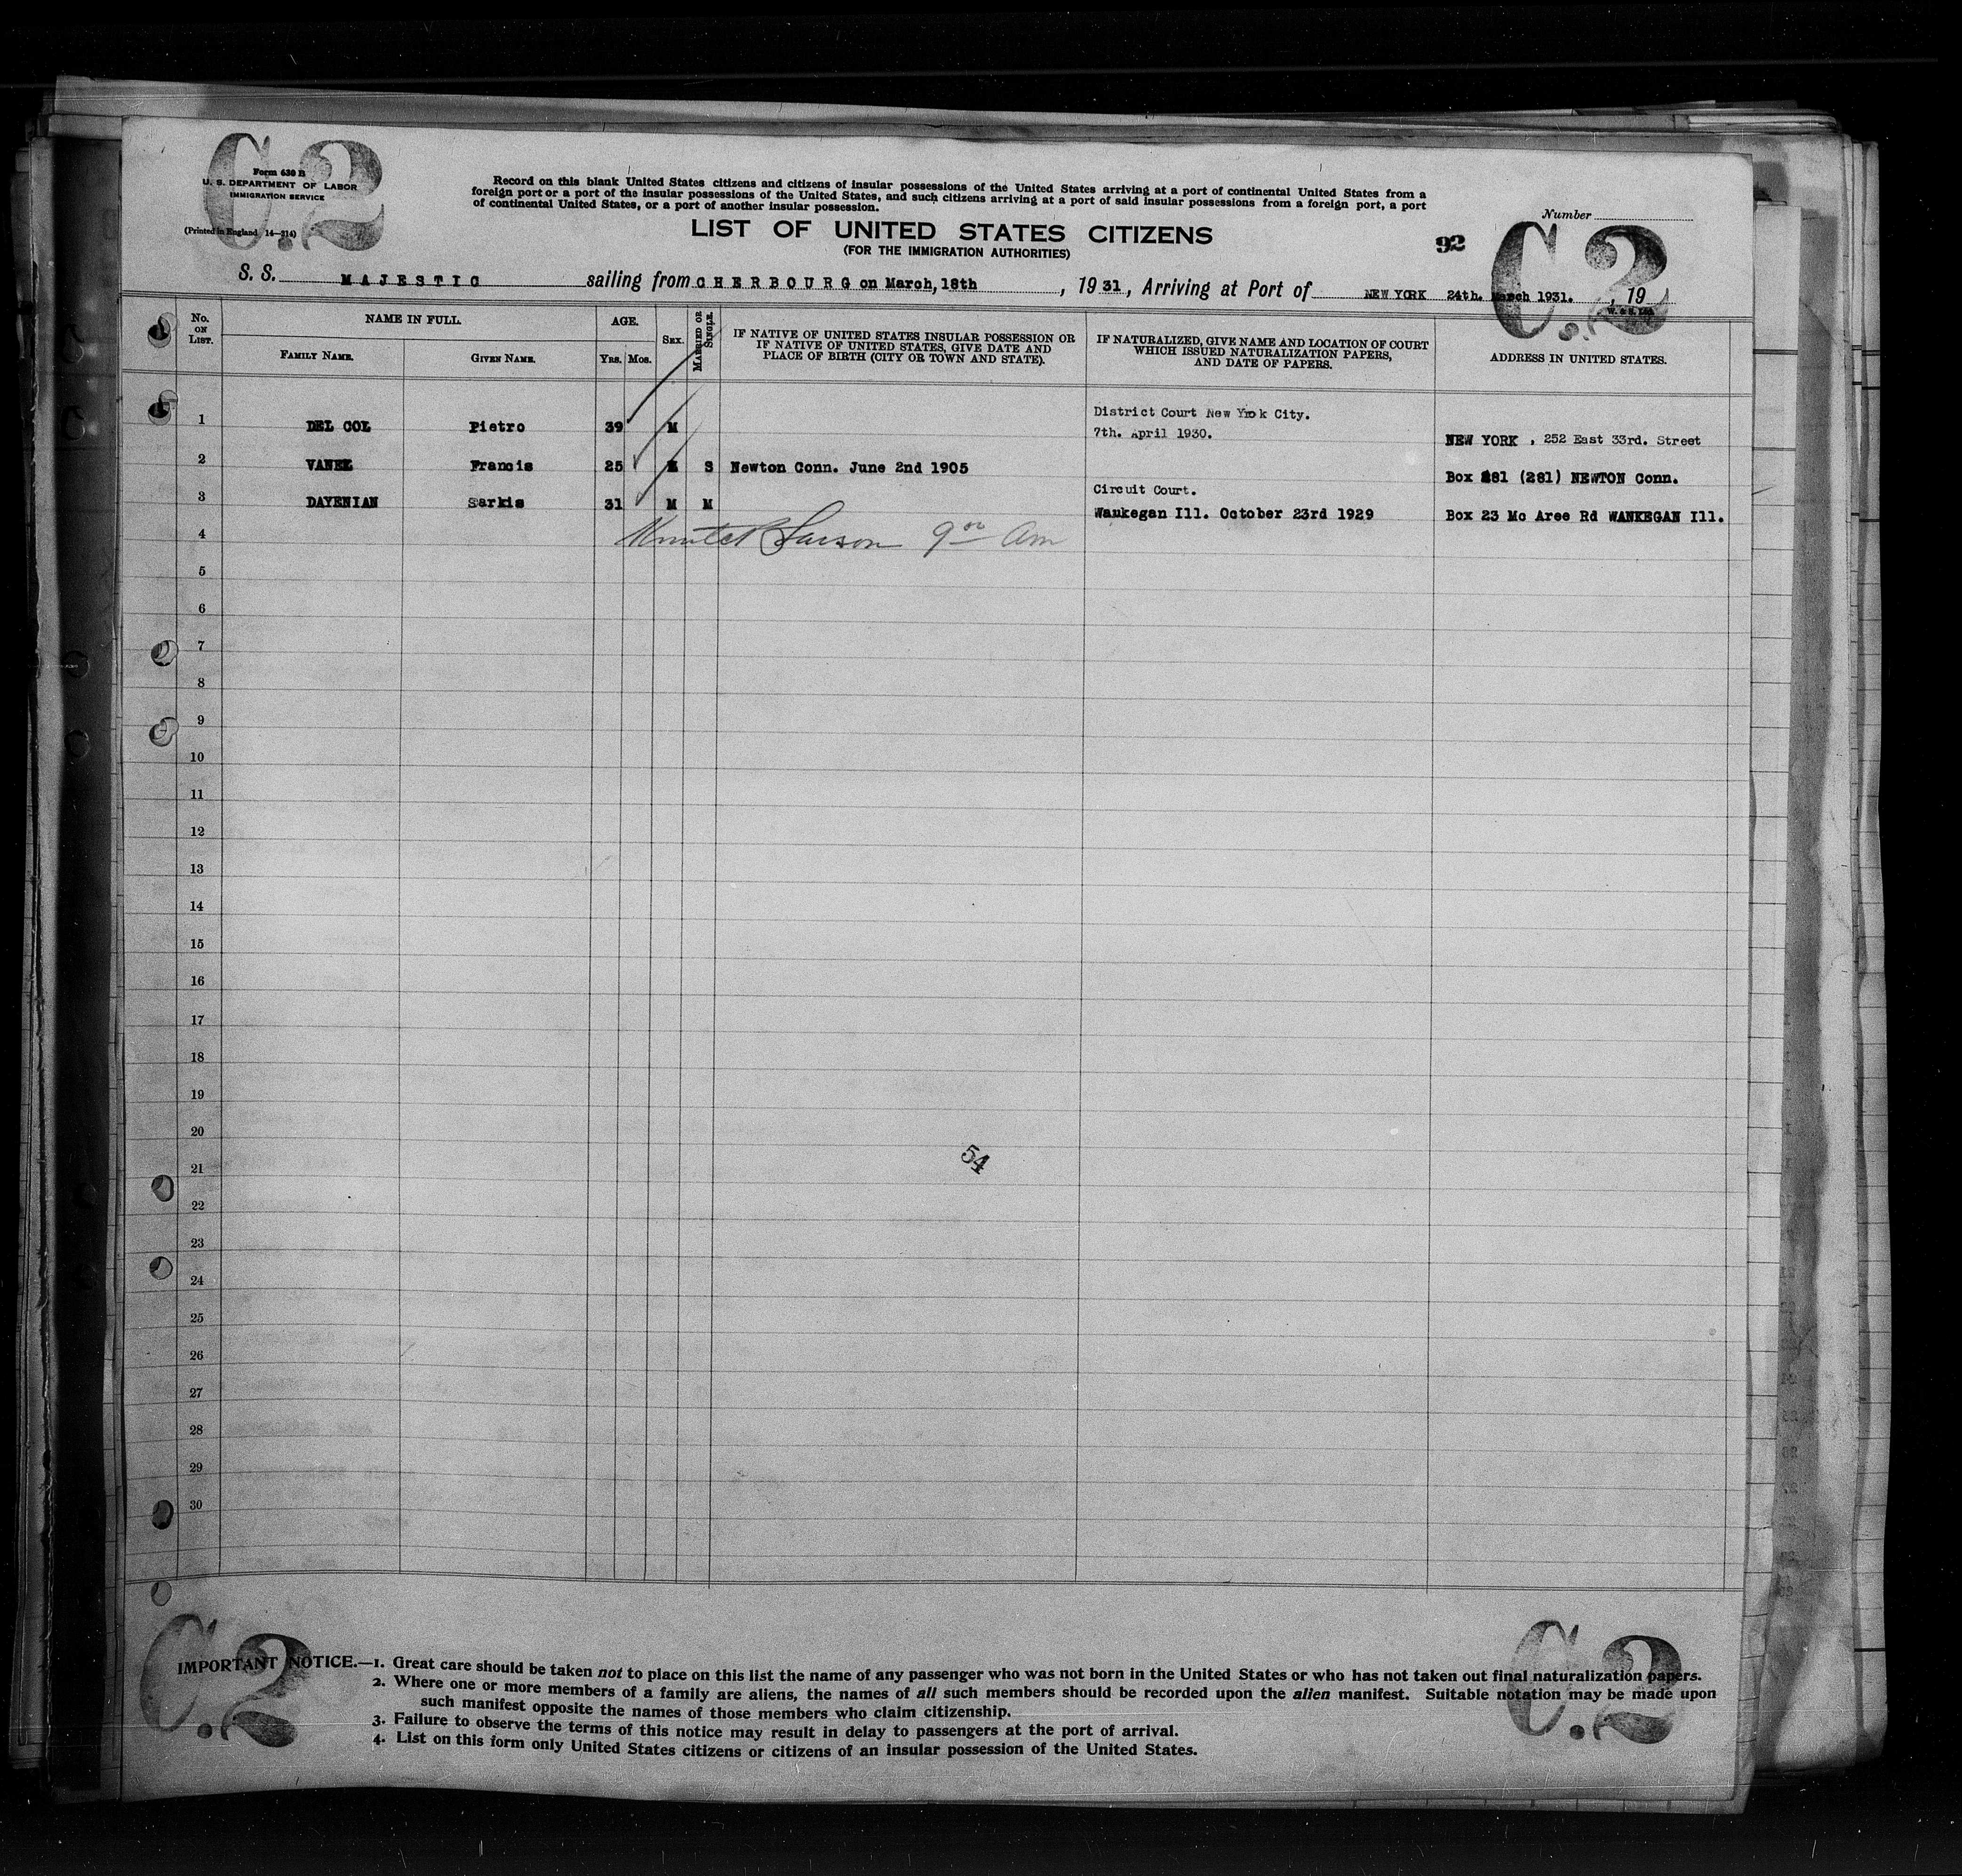 C.2
Form 630 B
U. S. DEPARTMENT OF LABOR
IMMIGRATION SERVICE
(Printed in England 14—214)
Record on this blank United States citizens and citizens of insular possessions of the United States arriving at a port of continental United States from a
foreign port or a port of the insular possessions of the United States, and such citizens arriving at a port of said insular possessions from a foreign port, a port
of continental United States, or a port of another insular possession.
Number
LIST OF UNITED STATES CITIZENS
(FOR THE IMMIGRATION AUTHORITIES)
92
C.2
S. S. MAJESTIC sailing from CHERBOURG on March, 18th, 1931, Arriving at Port of NEW YORK 24th. March 1931. , 19
No. ON LIST. NAME IN FULL. AGE. SEX. MARRIED OR SINGLE. IF NATIVE OF UNITED STATES INSULAR POSSESSION OR IF NATIVE OF UNITED STATES, GIVE DATE AND PLACE OF BIRTH (CITY OR TOWN AND STATE). IF NATURALIZED, GIVE NAME AND LOCATION OF COURT WHICH ISSUED NATURALIZATION PAPERS, AND DATE OF PAPERS. ADDRESS IN UNITED STATES.
FAMILY NAME. GIVEN NAME. YRS. MOS.
1 DEL COL Pietro 39 M District Court New Yrok City. 7th. April 1930. NEW YORK , 252 East 33rd. Street
2 VANEK Francis 25 S Newton Conn. June 2nd 1905 Box 281 (281) NEWTON Conn.
3 DAYENIAN Sarkis 31 M M Circuit Court. Waukegan Ill. October 23rd 1929 Box 23 Mc Aree Rd WANKEGAN Ill.
4 9 00 am
5
6
7
8
9
10
11
12
13
14
15
16
17
18
19
20
54
21
22
23
24
25
26
27
28
29
30
C.2
C.2
IMPORTANT NOTICE.—1. Great care should be taken not to place on this list the name of any passenger who was not born in the United States or who has not taken out final naturalization papers.
2. Where one or more members of a family are aliens, the names of all such members should be recorded upon the alien manifest. Suitable notation may be made upon
such manifest opposite the names of those members who claim citizenship.
3. Failure to observe the terms of this notice may result in delay to passengers at the port of arrival.
4. List on this form only United States citizens or citizens of an insular possession of the United States.